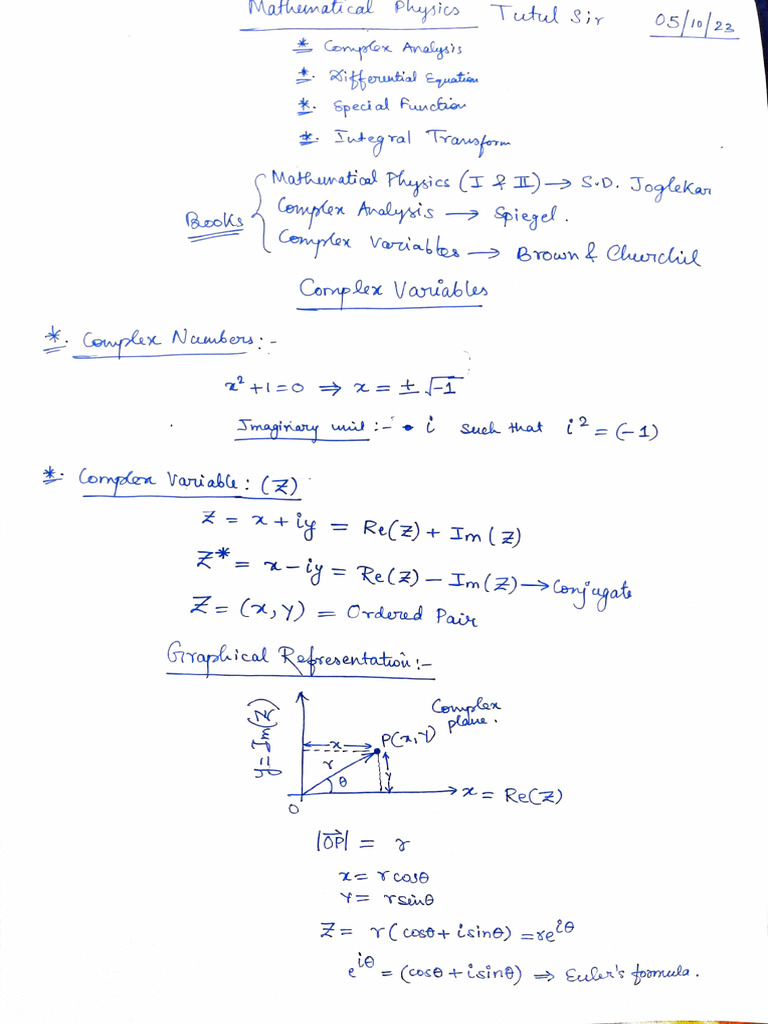 Mathematical Physics Tutul Sir 05/10/23
* Complex Analysis
*. Differential Equation
*. Special Function
*. Integral Transform
Books { Mathematical Physics (I & II) → S.D. Joglekar
Complex Analysis → Spiegel.
Complex Variables → Brown & Churchil
Complex Variables
*. Complex Numbers:-
x² + 1 = 0 ⇒ x = ± √-1
Imaginary unit :- • i such that i² = (-1)
*. Complex Variable: (Z)
Z = x + iy = Re(Z) + Im(Z)
Z* = x - iy = Re(Z) - Im(Z) → Conjugate
Z = (x, y) = Ordered Pair
Graphical Representation:-
Complex
plane.
y = Im(Z)
x
P(x, y)
r
θ
y
O
x = Re(Z)
|OP→| = r
x = r cosθ
y = r sinθ
Z = r(cosθ + i sinθ) = re^iθ
e^iθ = (cosθ + i sinθ) ⇒ Euler's formula.